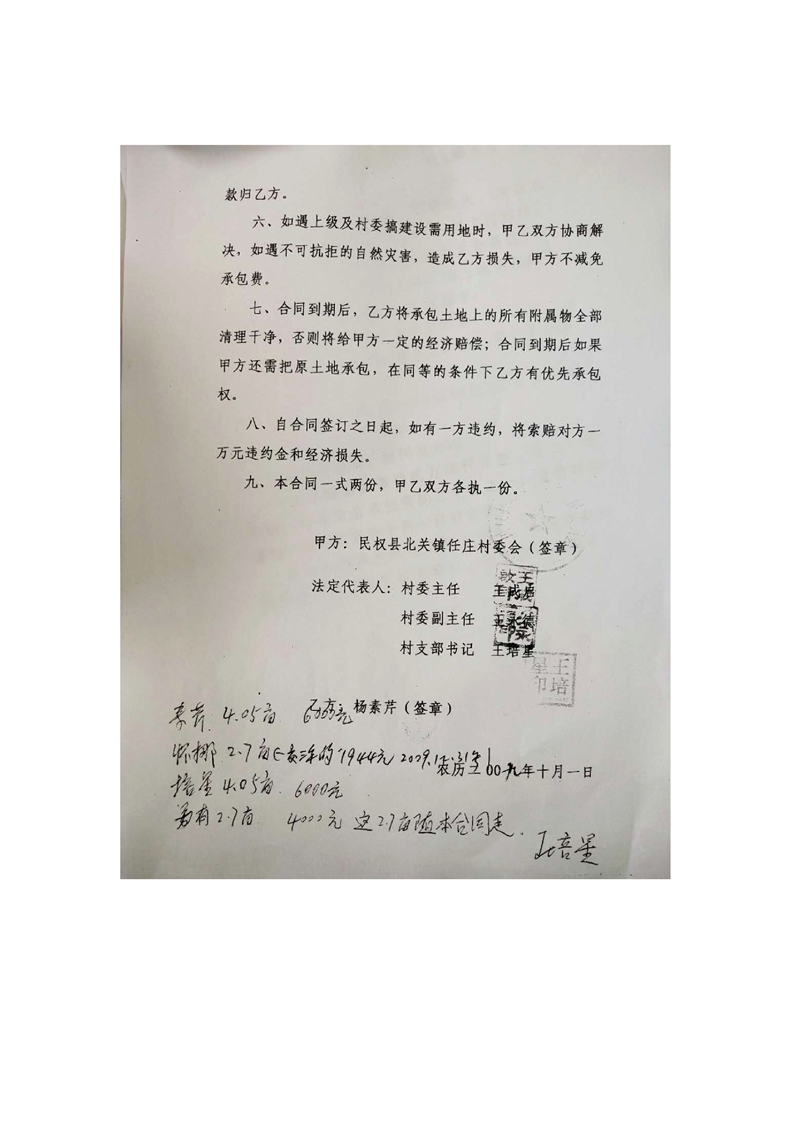 款归乙方。
六、如遇上级及村委搞建设需用地时，甲乙双方协商解
决，如遇不可抗拒的自然灾害，造成乙方损失，甲方不减免
承包费。
七、合同到期后，乙方将承包土地上的所有附属物全部
清理干净，否则将给甲方一定的经济赔偿；合同到期后如果
甲方还需把原土地承包，在同等的条件下乙方有优先承包
权。
八、自合同签订之日起，如有一方违约，将索赔对方一
万元违约金和经济损失。
九、本合同一式两份，甲乙双方各执一份。
甲方：民权县北关镇任庄村委会（签章）
法定代表人：村委主任
村委副主任
村支部书记 王培星
王培星印
素芹 4.05亩 杨素芹（签章）
2.7亩 1944元 农历二00九年十月一日
培星 4.05亩 6000元
2.7亩 4000元 这2.7亩随本合同走.
王培星